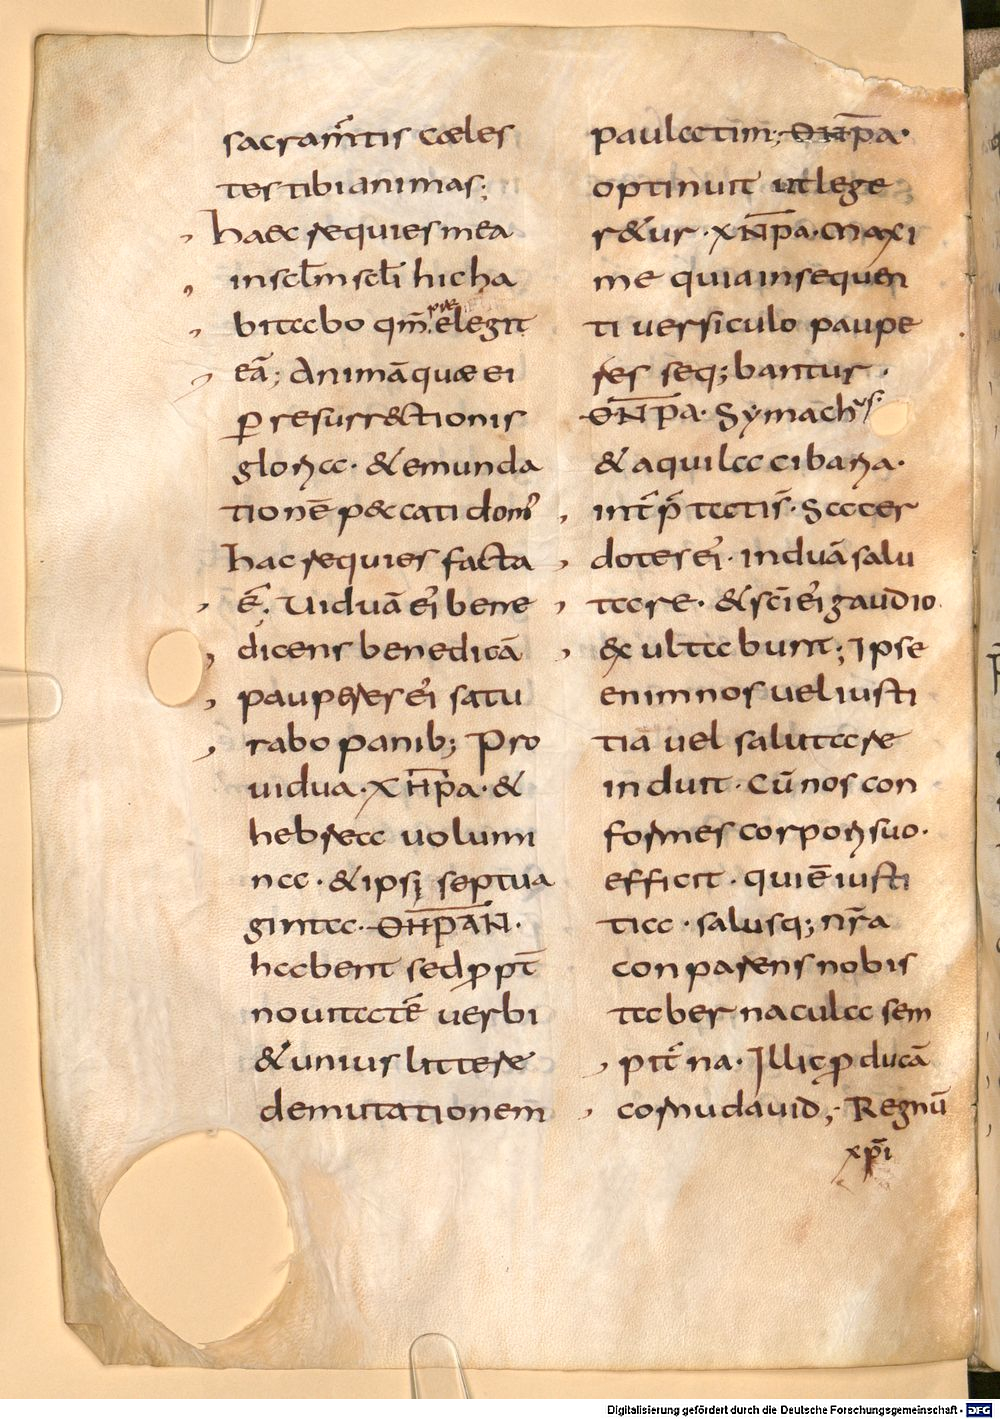 sacram̅tis cæles
tes tibi animas;
haec requies mea
in scl̅m scl̅i hic ha
bitabo qm̅ præ elegit
eā; Animā quæ ei
ꝑ resurr&tionis
gloria · & emunda
tionē p&cati dom̅
hac requies facta
ē. Uiduā ei᾽ bene
dicens benedicā
pauperes ei᾽ satu
rabo panib; Pro
uidua · XH̅Pa · &
hebrea uolumi
na · & ipsi septua
ginta · ΘHP̅AN ·
habent sed ꝓpt̅
nouitatē uerbi
& unius littere
demutationem
paulatim; ΘHP̅a ·
optinuit ut lege
r&ur · XH̅Pa · Maxi
me quia in sequen
ti uersiculo paupe
res seq; bantur ·
ΘHP̅a · Symachus
& aquila cibaria ·
int̅p̅tatis̅ · Sacer
dotes ei᾽ · induā salu
tare · & sc̅i ei᾽ gaudio
exultabunt; Ipse
enim nos uel iusti
tiā uel salutare
induit · Cū nos con
formes corpori suo ·
efficit · qui ē iusti
tia · salusq; nr̅a
con parens nobis
tabernacula sem
pit̅na · Illic ꝓducā
cornu dauid; · Regnū
xp̅i
Digitalisierung gefördert durch die Deutsche Forschungsgemeinschaft - DFG